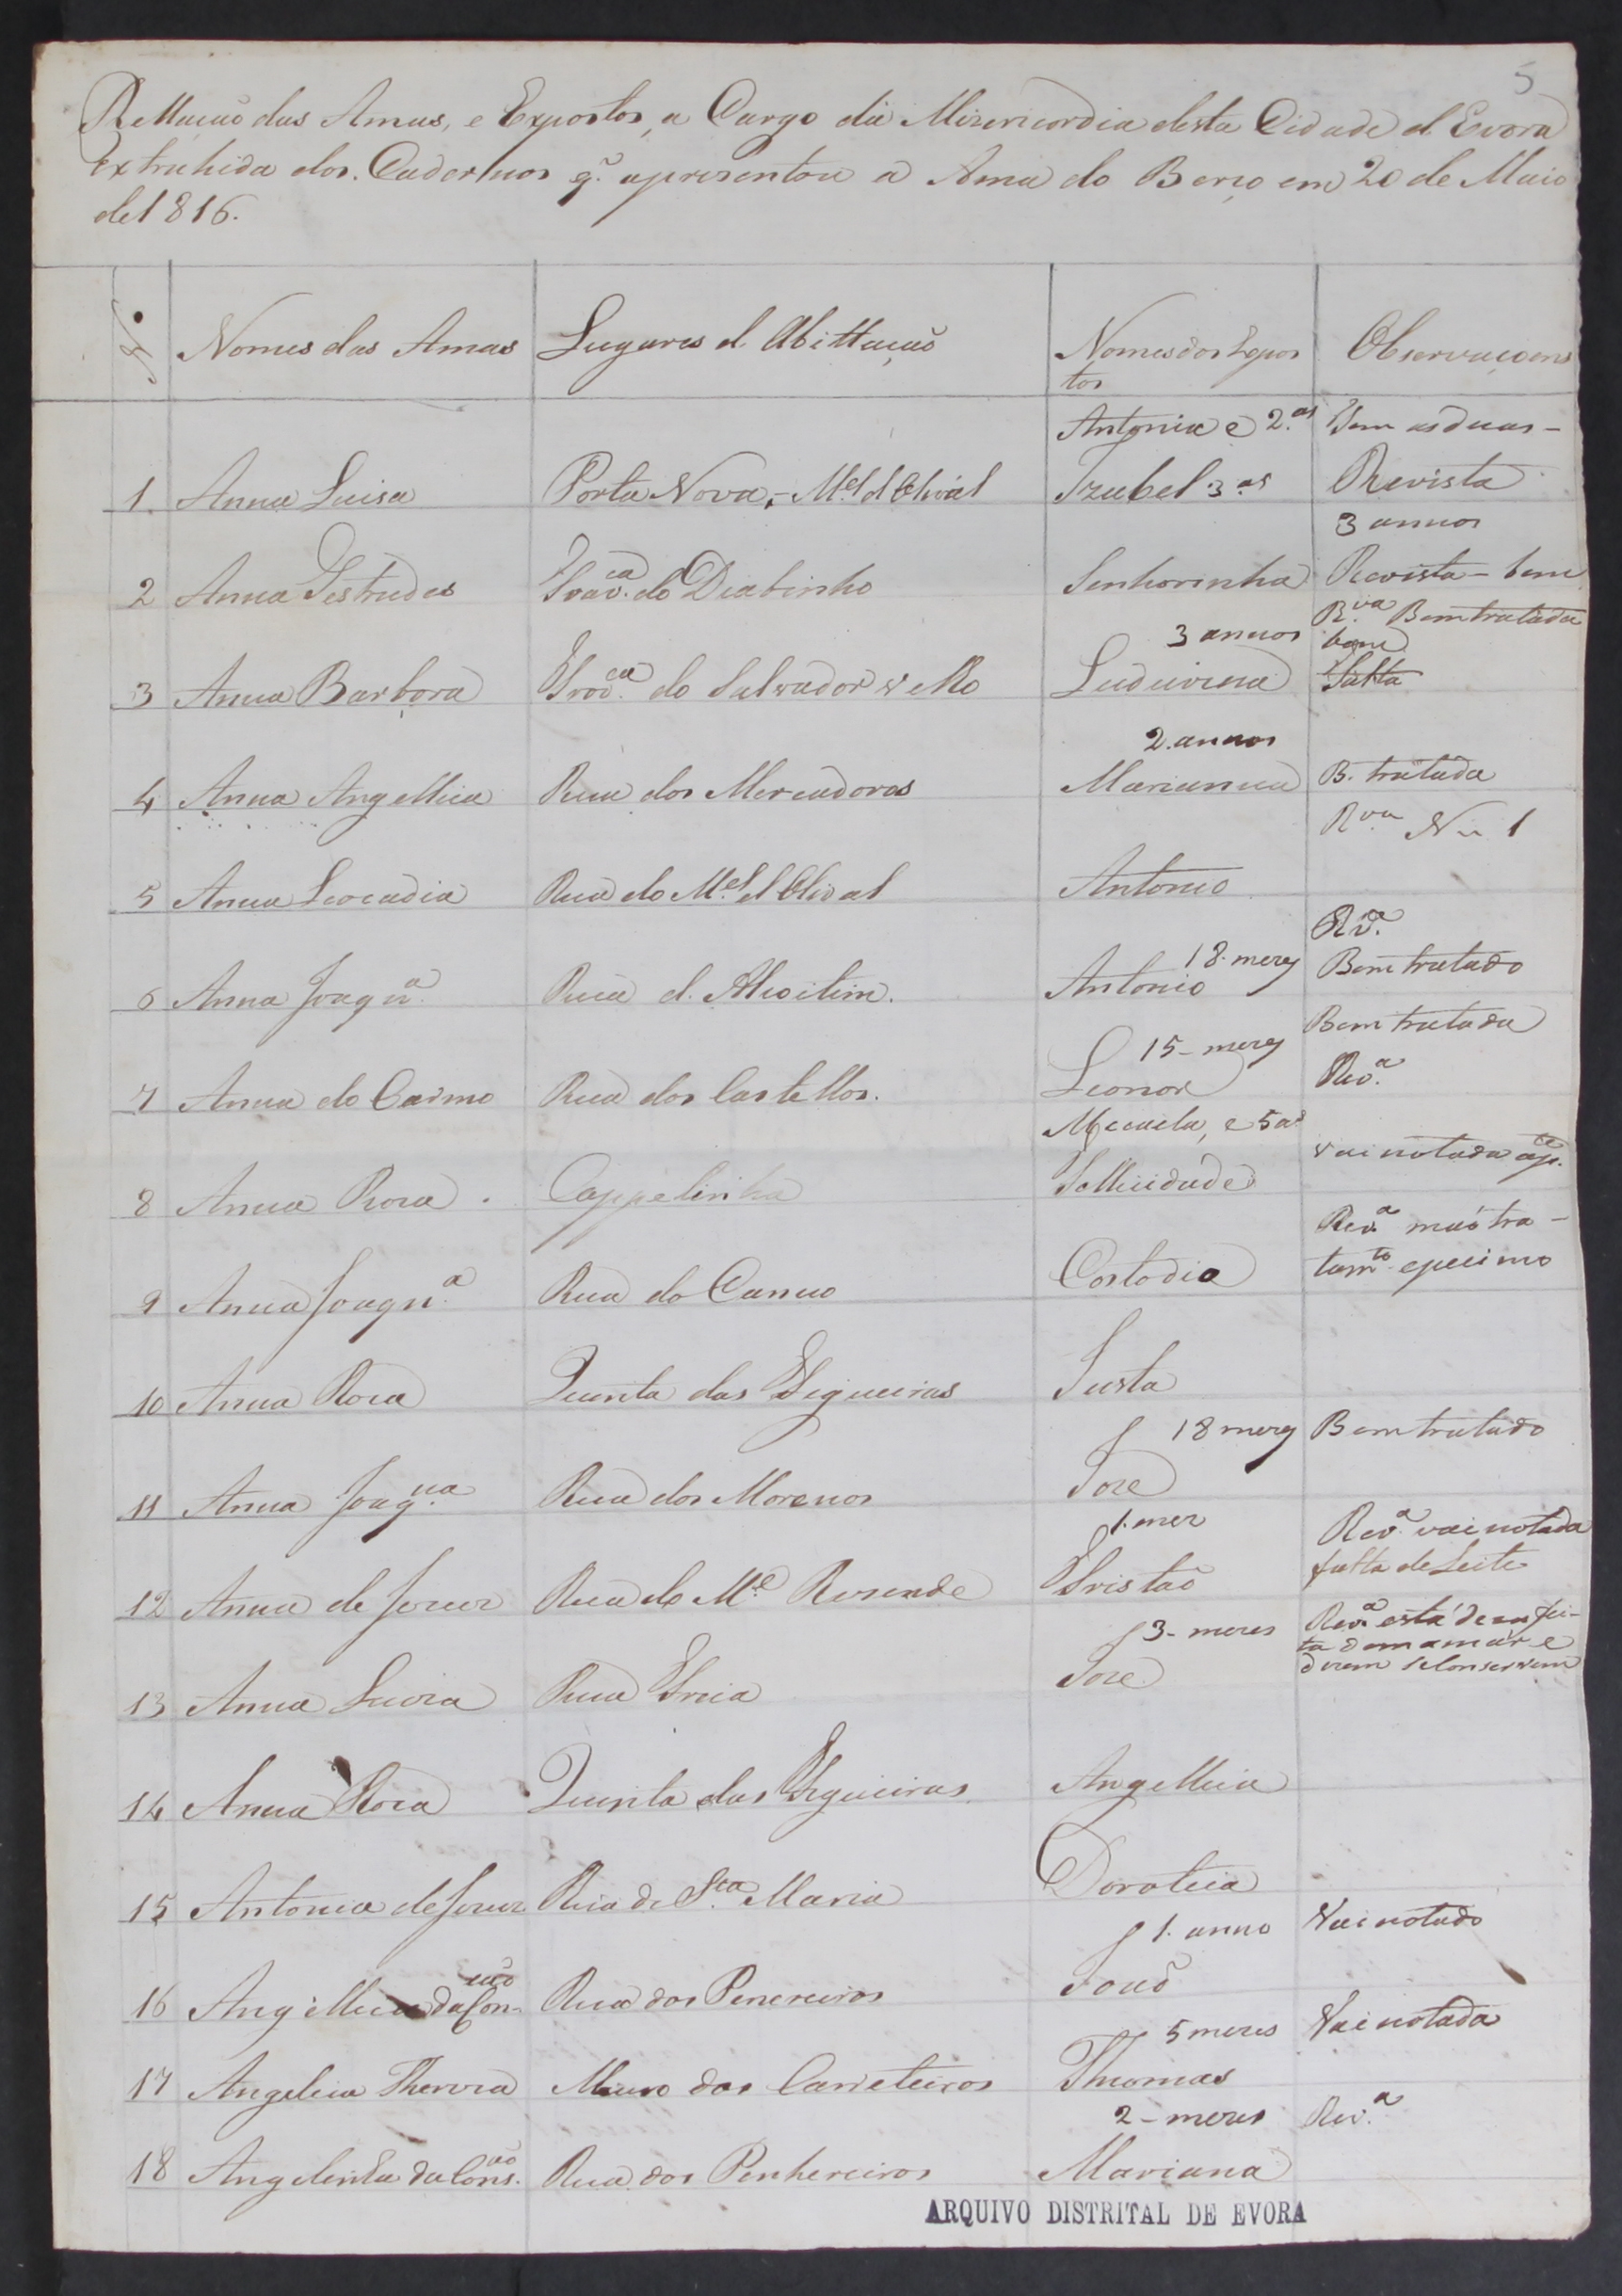 5
Rellação das Amas, e Expostos, a Cargo da Misericordia desta Cidade d'Evora
Extrahida dos Cadernos q. apresentou a Ama do Berço em 20 de Maio
de 1816.
N.º Nomes das Amas Lugares d. Abittação Nomes dos Espos Observaçoens
tos
Antonia e 2.as Bem as duas -
1 Anna Luisa Porta Nova, - M.el d'Olival Izabel 3.as Revista
3 annos
2 Anna Gestrudes Trav.ca do Diabinho Senhorinha Revista - bem
R.va Bem tratada
3 annos bem
3 Anna Barbora Trav.ca do Salvador vello Luduvina Falta
2. annos
4 Anna Angellica Rua dos Mercadores Marianna B. tratada
R.va N.º 1
5 Anna Leocadia Rua do M.el d'Olival Antonio
Rv.a
18. mezes Bem tratado
6 Anna Joaq.na Rua d. Alcoitim. Antonio
Bem tratada
15 - mezes
7 Anna do Carmo Rua dos Castellos. Leonor Rev.a
Micaela, e 5 as
vai notada
8 Anna Roza. Cappelinha Sollicidade
Rev.a máo tra -
9 Anna Joaqn.a Rua do Canno Costodia tam.to epecimo
10 Anna Roza Quinta das Figueiras Justa
18 mezes Bem tratado
11 Anna Joaq.na Rua dos Morenos Joze
1. mez Rev.a vai notada
falta de Leite
12 Anna de Jezus Rua do M.e Rezende Tristão
3 - mezes Rev.a está desafei-
ta da mamár e
13 Anna Luiza Rua Fria Joze dizem se conservem
14 Anna Roza Quinta das Figueiras Angellica
15 Antonia de Jezus Rua de S.ta Maria Doroteia
1. anno Vai notado
16 Angellica da Con.ção Rua dos Penereiros João
5 mezes Vai notada
17 Angelica Thereza Muro dos Carreteiros Thomas
2 - mezes Rev.a
18 Angelinha da Cons.ão Rua dos Penhereiros Mariana
ARQUIVO DISTRITAL DE EVORA